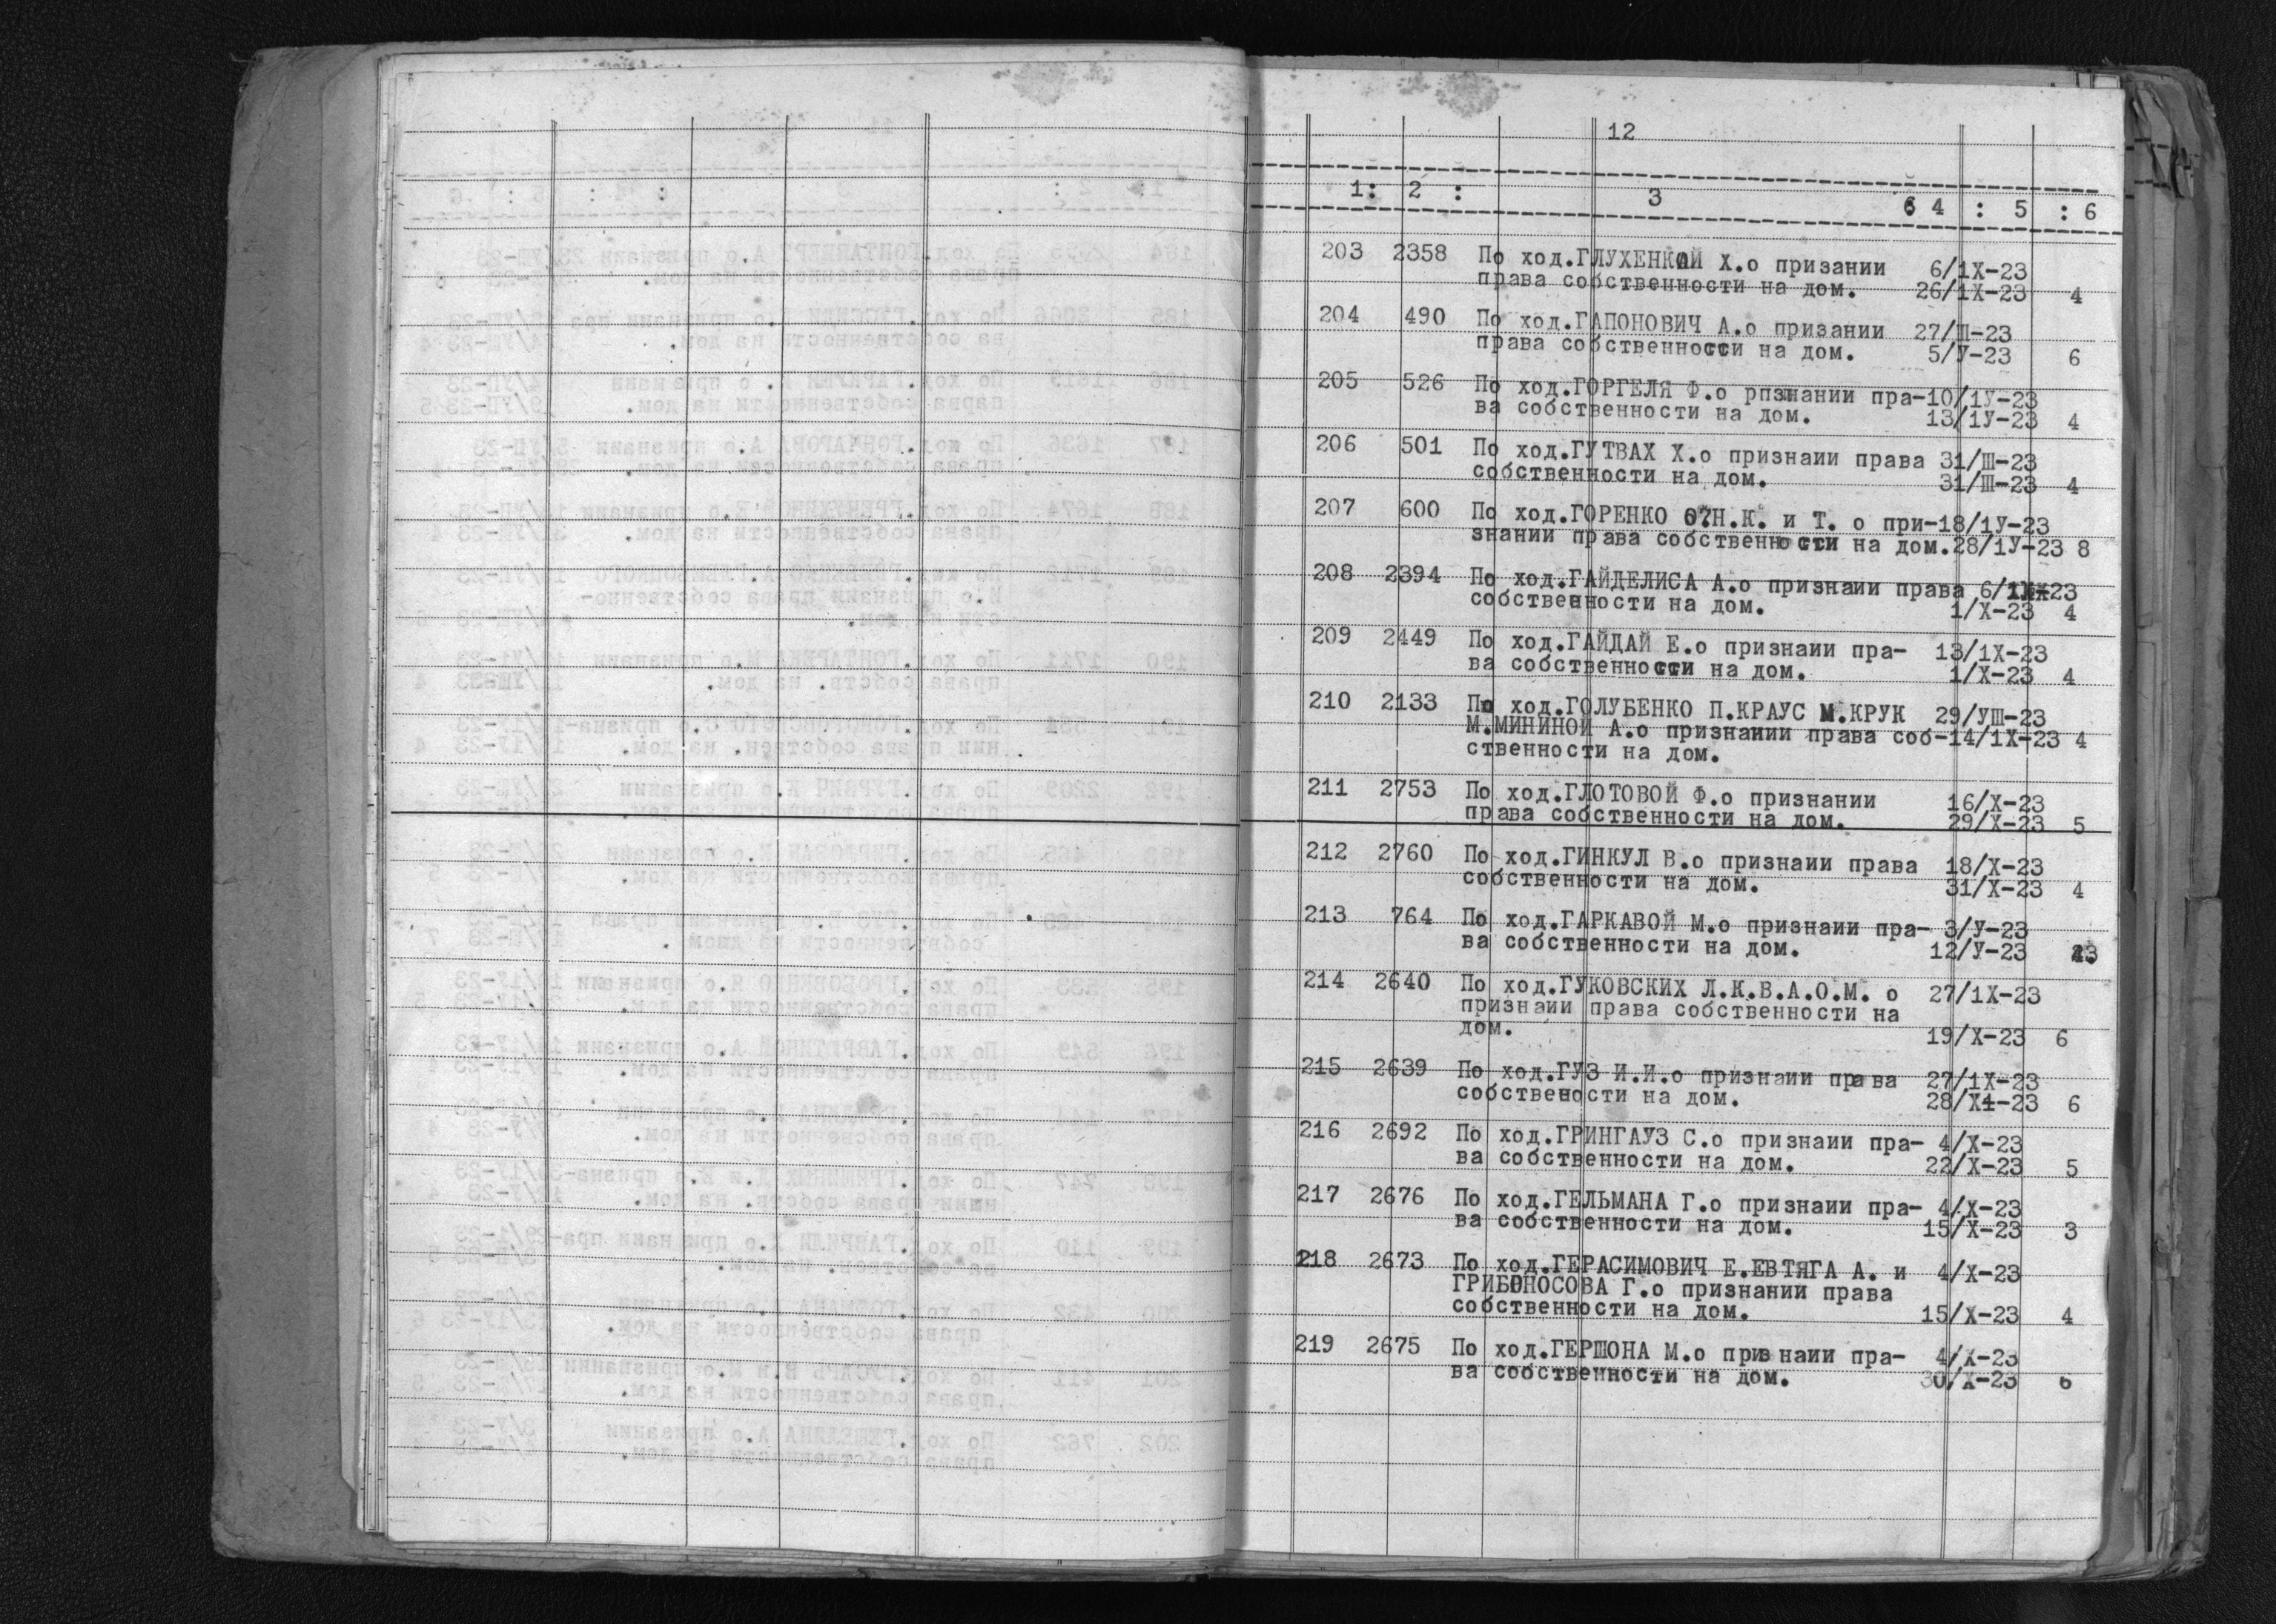 12
1: 2 : 3 : 4 : 5 : 6
203 2358 По ход.ГЛУХЕНКОЙ Х.о призании 6/1Х-23
права собственности на дом. 26/1Х-23 4
204 490 По ход.ГАПОНОВИЧ А.о призании 27/Ш-23
права собственности на дом. 5/У-23 6
205 526 По ход.ГОРГЕЛЯ Ф.о рпзнании пра-10/1У-23
ва собственности на дом. 13/1У-23 4
206 501 По ход.ГУТВАХ Х.о признаии права 31/Ш-23
собственности на дом. 31/Ш-23 4
207 600 По ход.ГОРЕНКО Н.К. и Т. о при-18/1У-23
знании права собственности на дом.28/1У-23 8
208 2394 По ход.ГАЙДЕЛИСА А.о признаии права 6/1Х-23
собственности на дом. 1/Х-23 4
209 2449 По ход.ГАЙДАЙ Е.о признаии пра- 13/1Х-23
ва собственности на дом. 1/Х-23 4
210 2133 По ход.ГОЛУБЕНКО П.КРАУС М.КРУК 29/УШ-23
М.МИНИНОЙ А.о признании права соб-14/1Х-23 4
ственности на дом.
211 2753 По ход.ГЛОТОВОЙ Ф.о признании 16/Х-23
права собственности на дом. 29/Х-23 5
212 2760 По ход.ГИНКУЛ В.о признаии права 18/Х-23
собственности на дом. 31/Х-23 4
213 764 По ход.ГАРКАВОЙ М.о признаии пра- 3/У-23
ва собственности на дом. 12/У-23
214 2640 По ход.ГУКОВСКИХ Л.К.В.А.О.М. о 27/1Х-23
признаии права собственности на
дом. 19/Х-23 6
215 2639 По ход.ГУЗ И.И.о признаии права 27/1Х-23
собствености на дом. 28/Х1-23 6
216 2692 По ход.ГРИНГАУЗ С.о признаии пра- 4/Х-23
ва собственности на дом. 22/Х-23 5
217 2676 По ход.ГЕЛЬМАНА Г.о признаии пра- 4/Х-23
ва собственности на дом. 15/Х-23 3
218 2673 По ход.ГЕРАСИМОВИЧ Е.ЕВТЯГА А. и 4/Х-23
ГРИБОНОСОВА Г.о признании права
собственности на дом. 15/Х-23 4
219 2675 По ход.ГЕРШОНА М.о признаии пра- 4/Х-23
ва собственности на дом. 30/Х-23 6